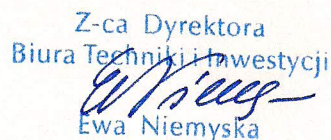 Z-ca Dyrektora
Biura Techniki i Inwestycji
Ewa Niemyska